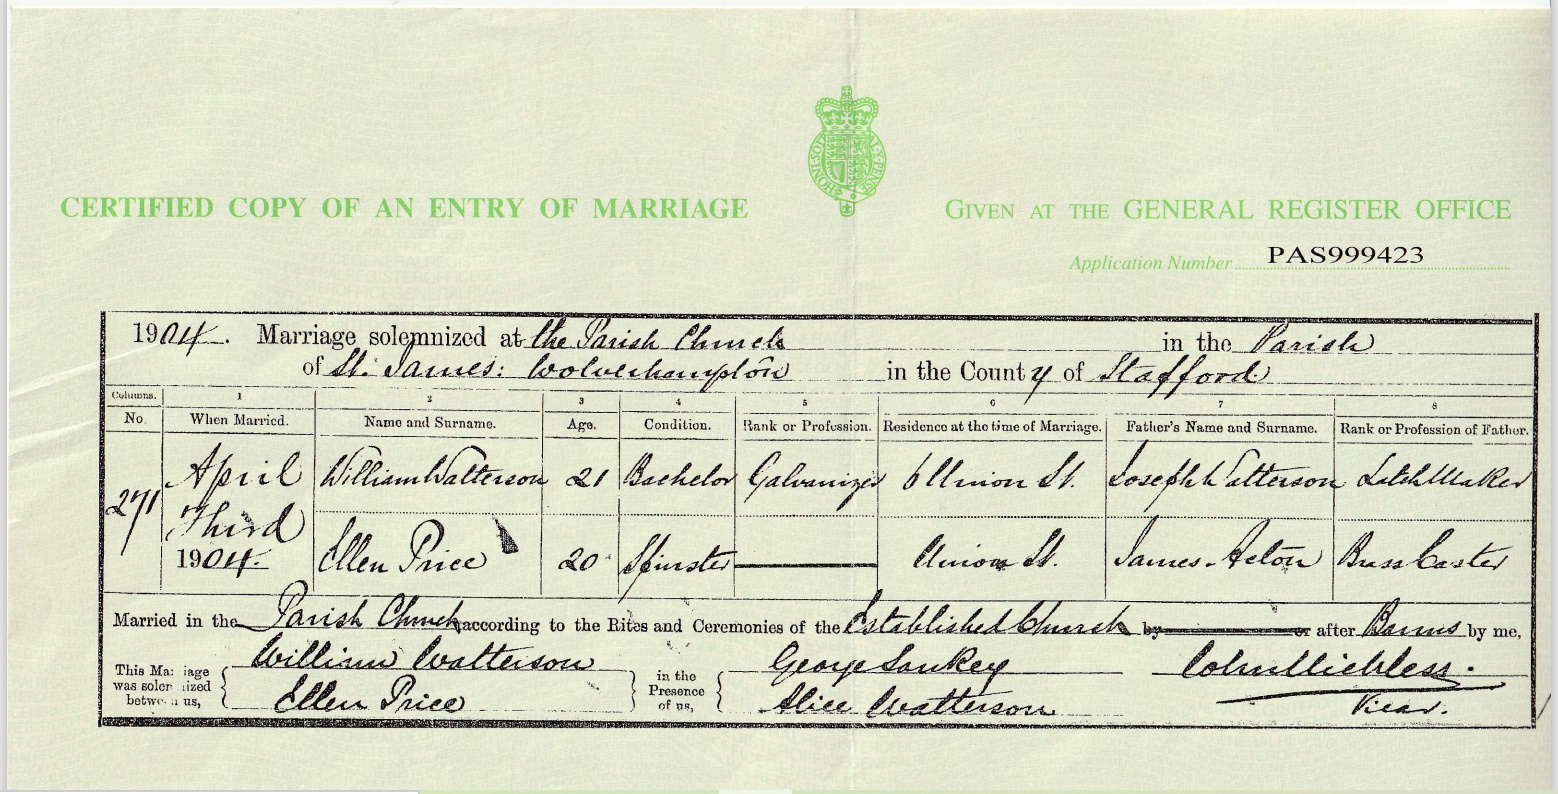 HONI·SOIT MAL·Y·PENSE
CERTIFIED COPY OF AN ENTRY OF MARRIAGE
GIVEN AT THE GENERAL REGISTER OFFICE
Application Number PAS999423
1904. Marriage solemnized at the Parish Church in the Parish
of St. James: Wolverhampton in the County of Stafford
Columns. 1 2 3 4 5 6 7 8
No. When Married. Name and Surname. Age. Condition. Rank or Profession. Residence at the time of Marriage. Father's Name and Surname. Rank or Profession of Father.
271 April Third 1904. William Watterson 21 Bachelor Galvanizer 6 Union St. Joseph Watterson Latch Maker
Ellen Price 20 Spinster Union St. James Acton Brass Caster
Married in the Parish Church according to the Rites and Ceremonies of the Established Church by or after Banns by me,
This Marriage was solemnized between us, William Watterson Ellen Price in the Presence of us, George Sankey Alice Watterson Vicar.